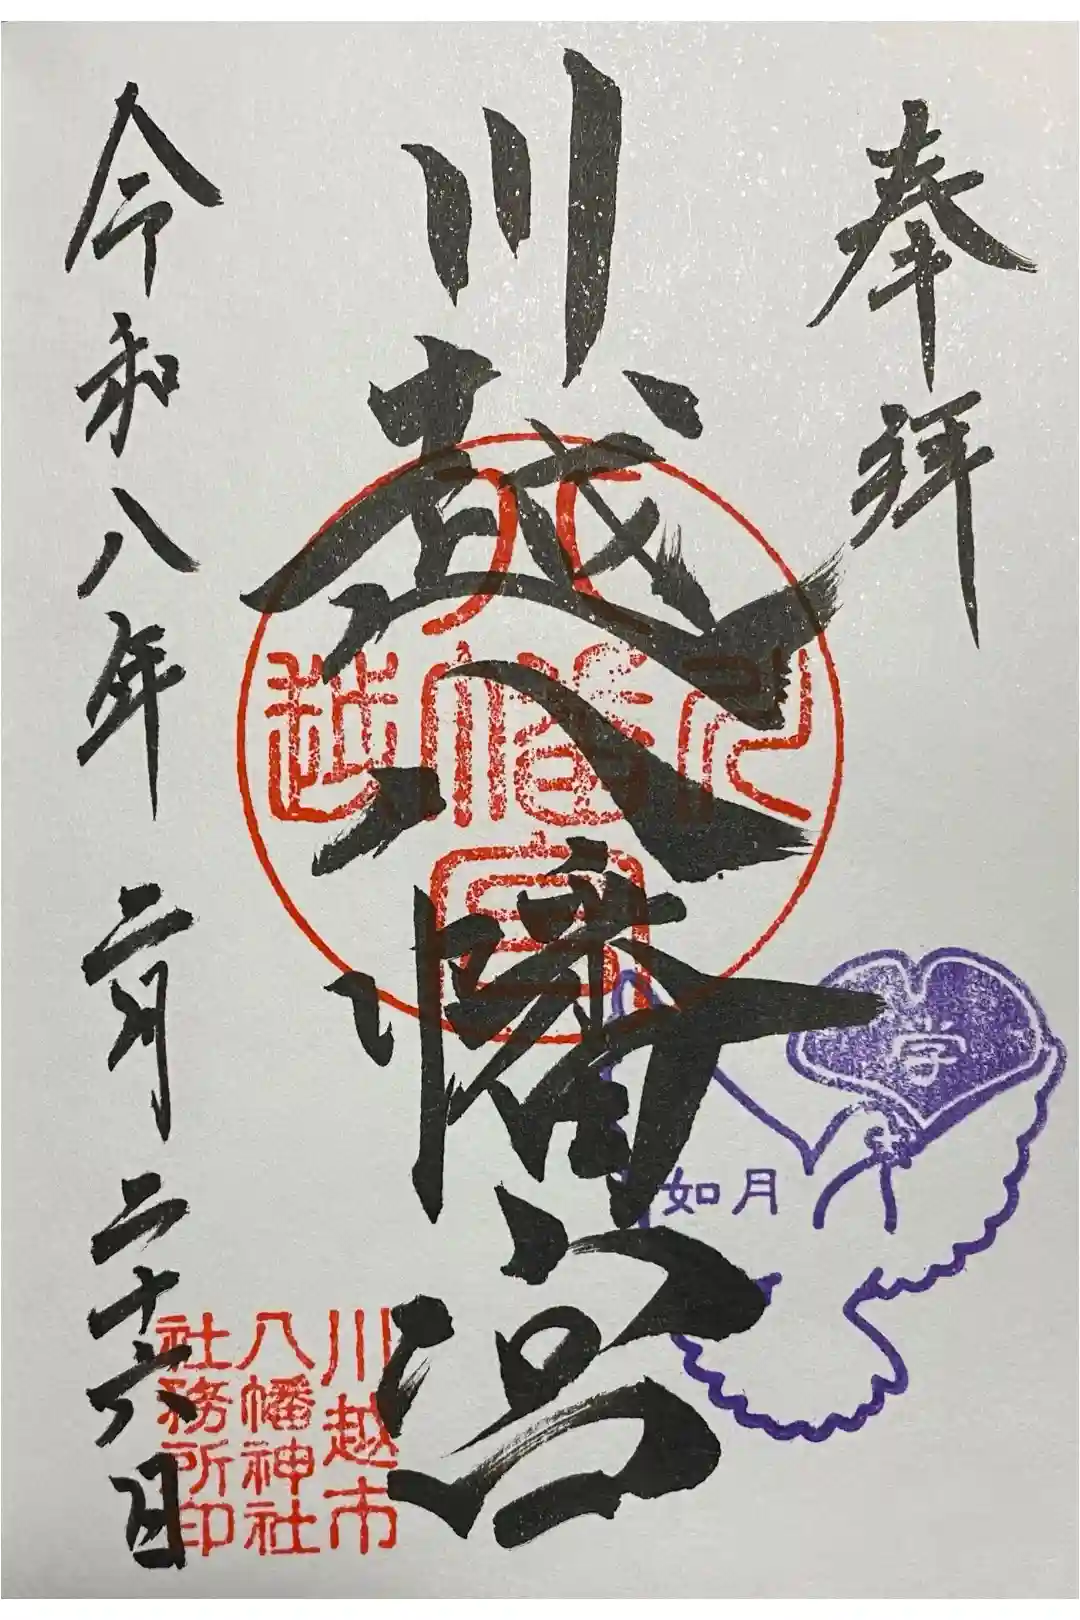 奉拝
川越八幡宮
令和八年二月二十六日
学
如月
川越市
八幡神社
社務所印